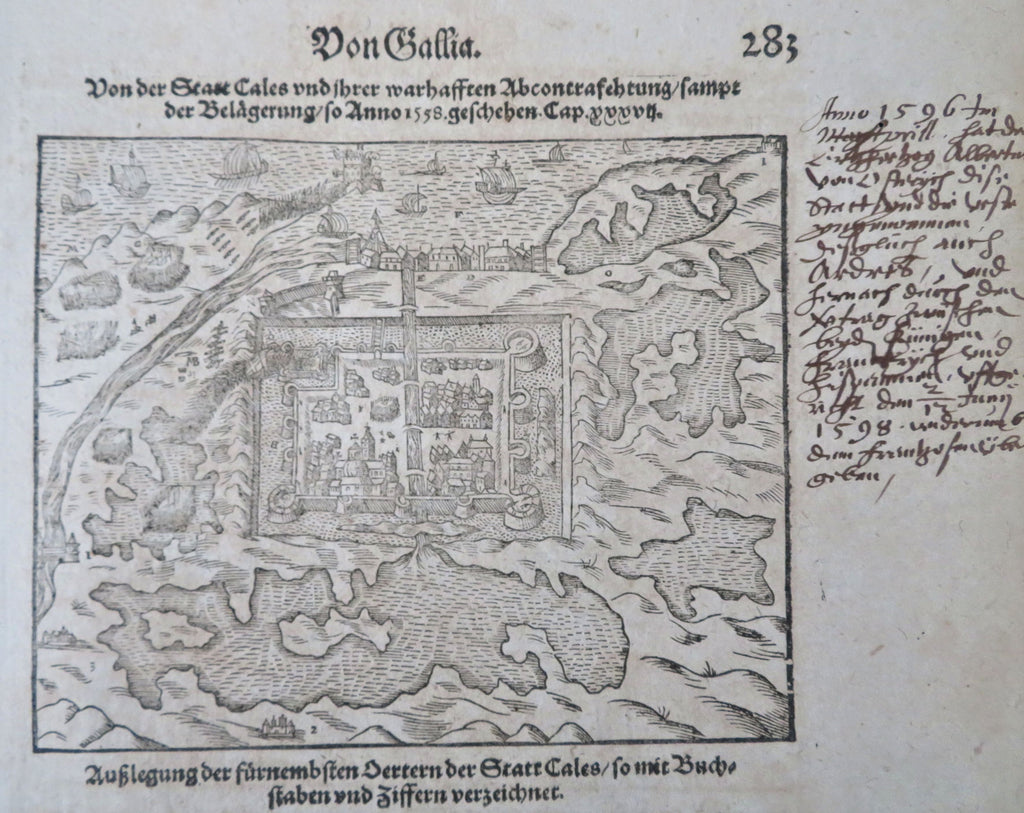 Von Gallia.
283
Von der Statt Cales vnd jhrer warhafften Abcontrafehtung/sampt
der Belägerung/so Anno 1558. geschehen. Cap. xxxvij.
Anno 1596 Im
hat der
Ertzhertzog Albertus
von Osterych dise
Statt vnd die Veste
yngenommen,
desglich auch
Ardres, vnd
hernach durch den
zwüschen
beyd Künigen
Franckrych vnd
Hispannien,
den 2/12 Junij
1598. widerumb
dem Frantzosen übe
geben,
1
F
E
D
1
3
2
Außlegung der fürnembsten Oertern der Statt Cales/so mit Buch-
staben vnd Ziffern verzeichnet.